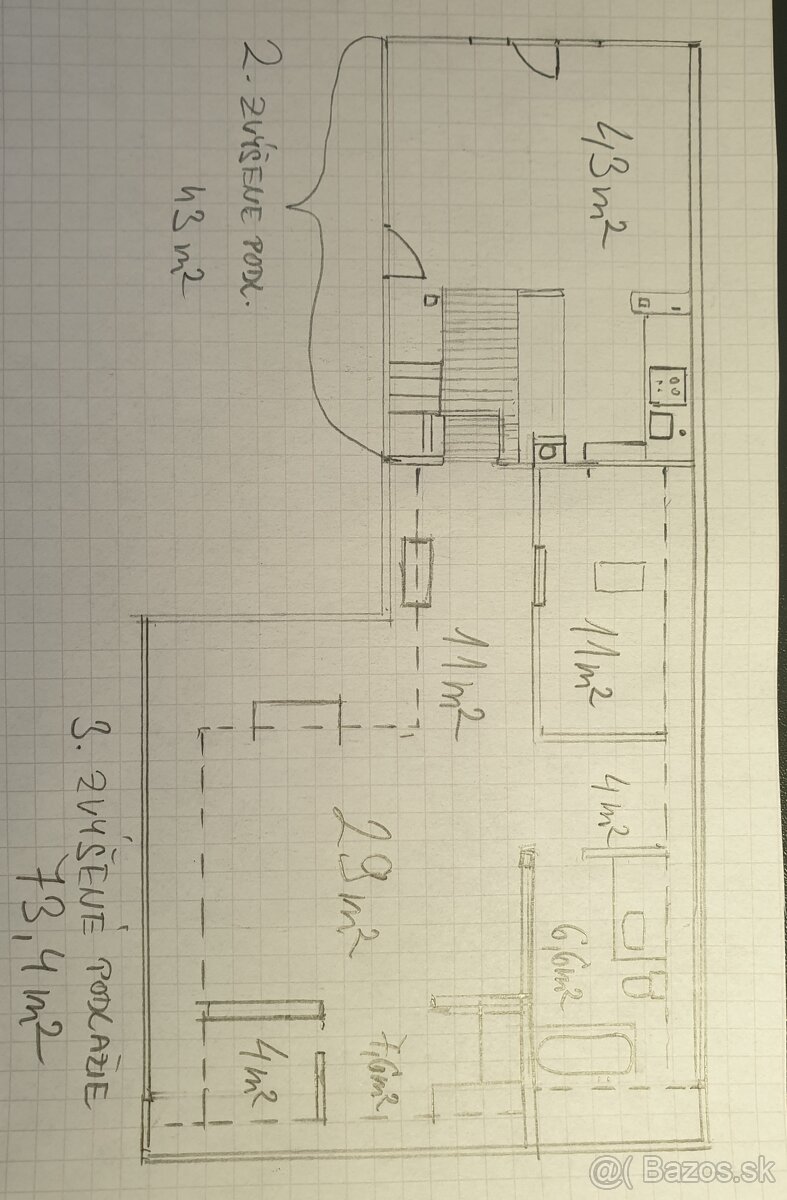 2. ZVÝŠENÉ PODL.
43 m²
43 m²
11 m²
11 m²
4 m²
29 m²
6,6 m²
7,6 m²
4 m²
3. ZVÝŠENÉ PODLAŽIE
73,4 m²
@( Bazos.sk